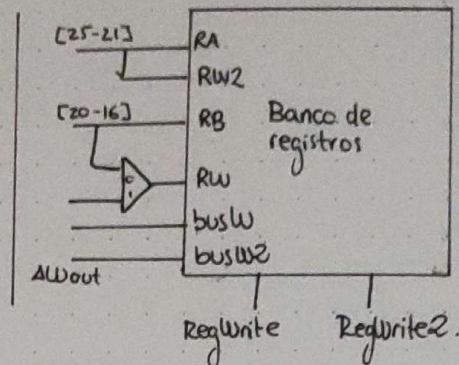 [25-21]
RA
RW2
[20-16]
RB
Banco de
registros
0
1
RW
busW
busW2
ALUout
RegWrite
RegWrite2.